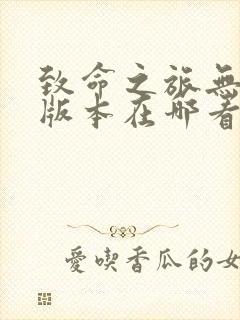 致命之旅無
版本在哪看
愛喫香瓜的女